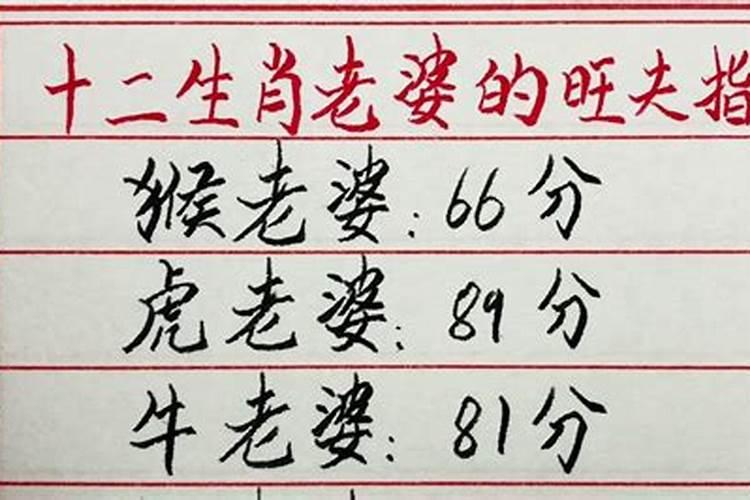 十二生肖老婆的旺夫指
猴老婆:66分
虎老婆:89分
牛老婆:81分